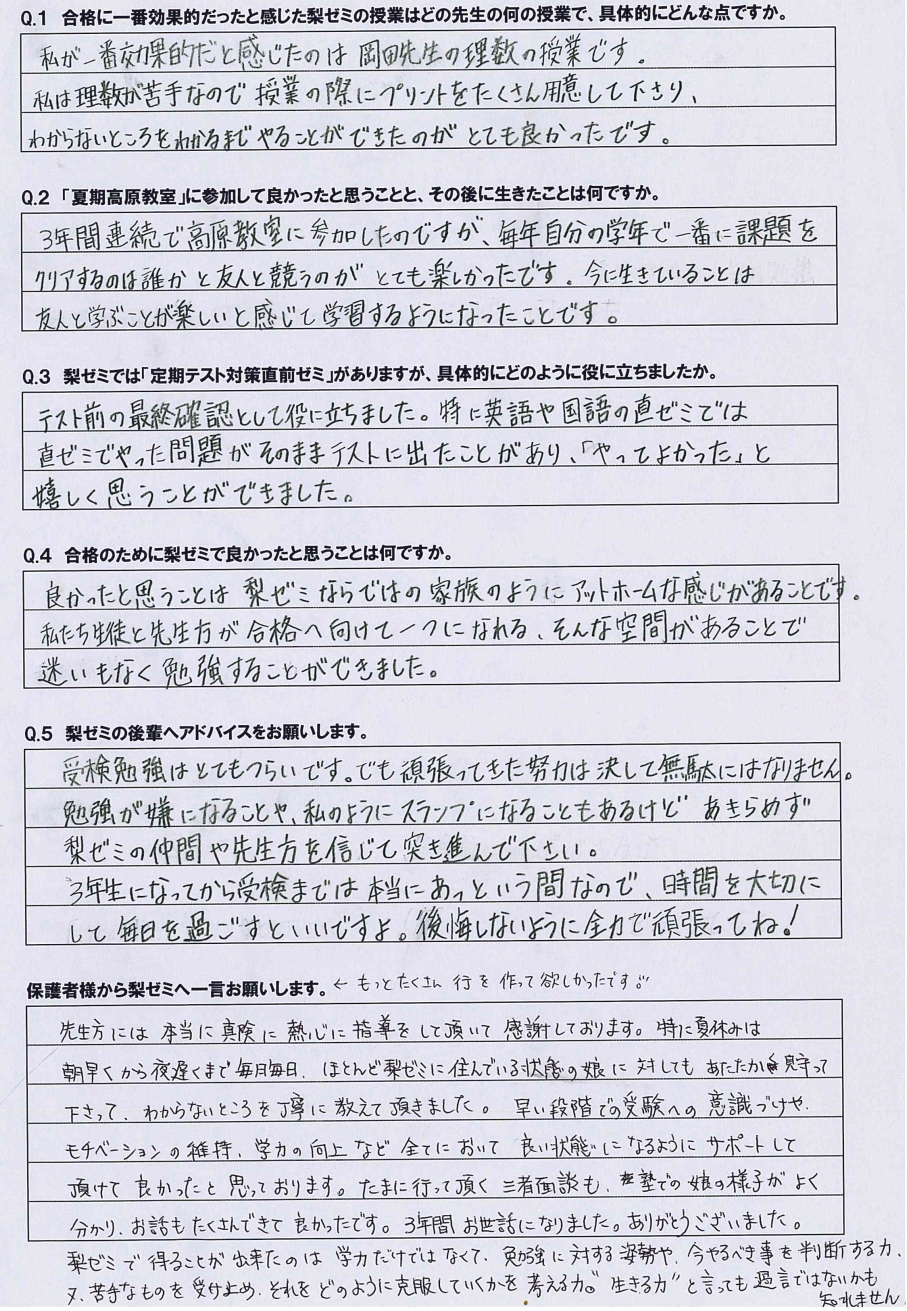 Q.1 合格に一番効果的だったと感じた梨ゼミの授業はどの先生の何の授業で、具体的にどんな点ですか。
私が一番効果的だと感じたのは 岡田先生の理数の授業です。
私は理数が苦手なので 授業の際にプリントをたくさん用意して下さり、
わからないところをわかるまでやることができたのが とても良かったです。
Q.2 「夏期高原教室」に参加して良かったと思うことと、その後に生きたことは何ですか。
3年間連続で高原教室に参加したのですが、毎年自分の学年で一番に課題を
クリアするのは誰か と友人と競うのが とても楽しかったです。今に生きていることは
友人と学ぶことが楽しいと感じて学習するようになったことです。
Q.3 梨ゼミでは「定期テスト対策直前ゼミ」がありますが、具体的にどのように役に立ちましたか。
テスト前の最終確認として役に立ちました。特に英語や国語の直ゼミでは
直ゼミでやった問題がそのままテストに出たことがあり、「やってよかった」と
嬉しく思うことができました。
Q.4 合格のために梨ゼミで良かったと思うことは何ですか。
良かったと思うことは 梨ゼミならではの家族のようにアットホームな感じがあることです。
私たち生徒と先生方が合格へ向けて一つになれる、そんな空間があることで
迷いもなく勉強することができました。
Q.5 梨ゼミの後輩へアドバイスをお願いします。
受検勉強はとてもつらいです。でも頑張ってきた努力は決して無駄にはなりません。
勉強が嫌になることや、私のようにスランプになることもあるけど あきらめず
梨ゼミの仲間や先生方を信じて突き進んで下さい。
3年生になってから受検までは本当にあっという間なので、時間を大切に
して毎日を過ごすといいですよ。後悔しないように全力で頑張ってね!
保護者様から梨ゼミへ一言お願いします。← もっとたくさん 行を作って欲しかったです。
先生方には 本当に真険に 熱心に指導をして頂いて 感謝しております。特に夏休みは
朝早くから夜遅くまで毎月毎日、ほとんど梨ゼミに住んでいる状態の娘に対しても あたたかく見守って
下さって、わからないところを丁寧に教えて頂きました。早い段階での受験への意識づけや、
モチベーションの維持、学力の向上など 全てにおいて 良い状態になるように サポートして
頂けて 良かったと思っております。たまに行って頂く三者面談も、塾での娘の様子がよく
分かり、お話もたくさんできて良かったです。3年間お世話になりました。ありがとうございました。
梨ゼミで得ることが出来たのは 学力だけではなくて、勉強に対する姿勢や、今やるべき事を判断する力、
又、苦手なものを受け止め、それをどのように克服していくかを考える力。"生きる力"と言っても過言ではないかも
知れません